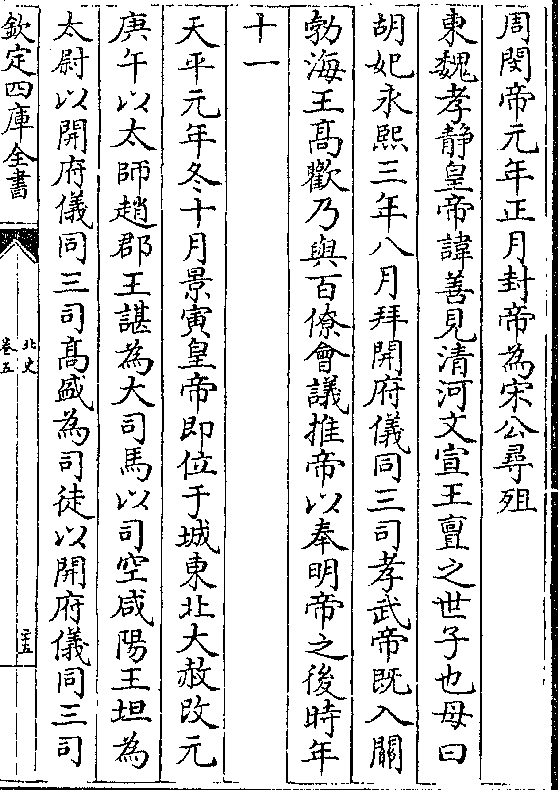 周閔帝元年正月封帝為宋公尋殂
東魏孝静皇帝諱善見清河文宣王亶之世子也母曰
胡妃永熙三年八月拜開府儀同三司孝武帝既入關
勃海王髙歡乃與百僚會議推帝以奉明帝之後時年
十一
天平元年冬十月景寅皇帝即位于城東北大赦改元
庚午以太師趙郡王諶為大司馬以司空咸陽王坦為
太尉以開府儀同三司髙盛為司徒以開府儀同三司
欽定四庫全書
北史
卷五
二十五